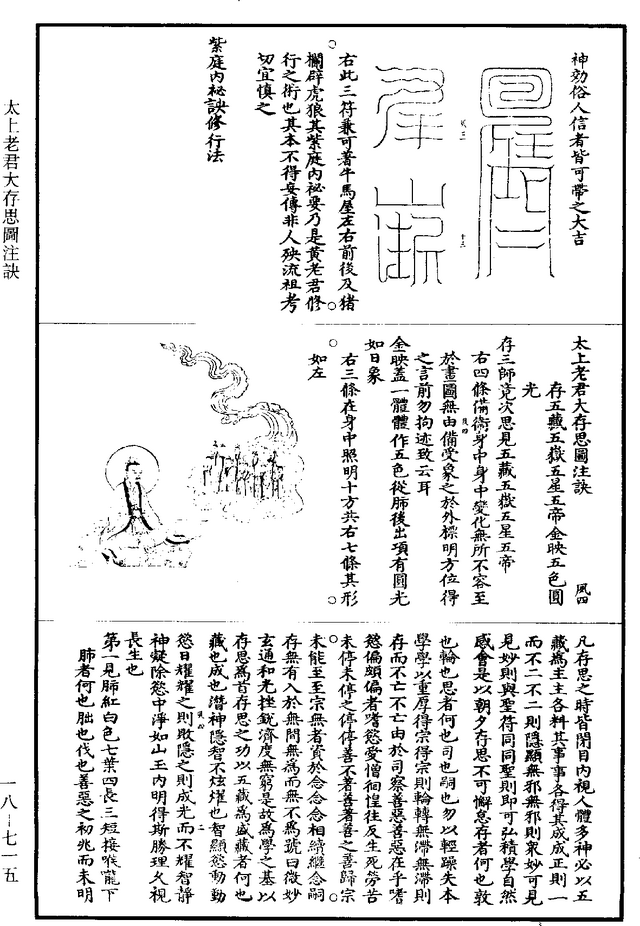 神効俗人信者皆可帶之大吉
右此三符兼可著牛馬屋左右前後及猪
欄辟虎狼其紫庭内祕要乃是黄老君修
行之術也其本不得妄傳非人殃流祖考
切宜慎之
紫庭内祕訣修行法
太上老君大存思圖注訣
風四
存五藏五嶽五星五帝金映五色圓
光
存三師竟次思見五藏五嶽五星五帝
右四條備衛身中身中變化無所不容至
於畫圖無由備受象之於外標明方位得
之言前勿拘迹致云耳
金映蓋一體體作五色從肺後出項有圓光
如日象
右三條在身中照明十方共右七條其形
如左
凡存思之時皆閉目内視人體多神必以五
藏為主主各料其事事各得其成成正則一
而不二不二則隱顯無邪無邪則衆妙可見
見妙則與聖符同同聖則即可弘積學自然
感會是以朝夕存思不可懈怠存者何也敦
也輪也思者何也司也嗣也勿以輕躁失本
學學以重厚得宗得宗則輪轉無滯無滯則
存而不亡不亡由於司察善惡善惡在乎嗜
慾偏頗偏者嗜慾愛憎徊惶往反生死勞苦
未停未停之停停善不著善著善之善歸宗
未能至至宗無者資於念念念相續繼念嗣
存無有入於無間無為而無不為號曰微妙
玄通和光挫鋭濟度無窮是故為學之基以
存思為首存思之功以五藏為盛藏者何也
藏也成也潛神隱智不炫燿也智顯慾動動
慾日耀耀之則敗隱之則成光而不耀智静
神凝除慾中淨如山玉内明得斯勝理久視
長生也
第一見肺紅白色七葉四長三短接喉嚨下
肺者何也朏也伐也善惡之初兆而未明
太上老君大存思圖注訣
一八－七一五